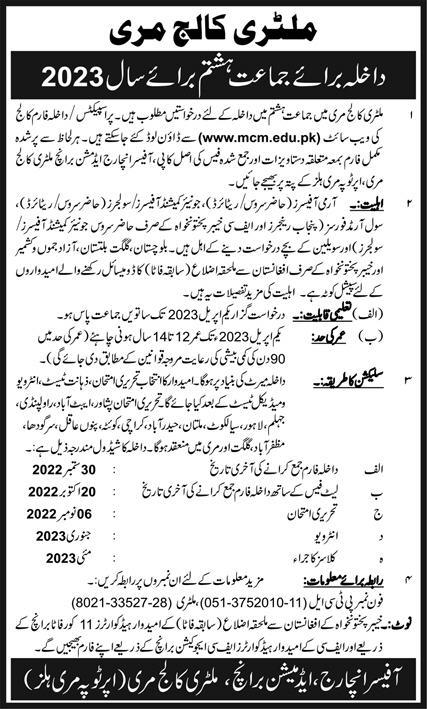 ملٹری کالج مری
داخلہ برائے جماعت ہشتم برائے سال 2023
۱ ملٹری کالج مری میں جماعت ہشتم میں داخلہ کے لئے درخواستیں مطلوب ہیں۔ پراسپیکٹس/داخلہ فارم کالج
کی ویب سائٹ (www.mcm.edu.pk) سے ڈاؤن لوڈ کئے جاسکتے ہیں۔ ہر لحاظ سے پر شدہ
مکمل فارم بمعہ متعلقہ دستاویزات اور جمع شدہ فیس کی اصل کاپی، آفیسر انچارج ایڈمشن برانچ ملٹری کالج
مری، اپر ٹوپہ مری ہلز کے پتہ پر بھیجے جائیں۔
۲ اہلیت:۔ آرمی آفیسرز (حاضر سروس/ریٹائرڈ)، جونیئر کمیشنڈ آفیسرز/سولجرز (حاضر سروس/ریٹائرڈ)،
سول آرمڈ فورسز (پنجاب رینجرز اور ایف سی خیبر پختونخواہ کے صرف حاضر سروس جونیئر کمیشنڈ آفیسرز
/سولجرز) اور سویلین کے بچے درخواست دینے کے اہل ہیں۔ بلوچستان، گلگت بلتستان، آزاد جموں و کشمیر
اور خیبر پختونخواہ کے صرف افغانستان سے ملحقہ اضلاع (سابقہ فاٹا) کا ڈومیسائل رکھنے والے امیدواروں
کے لئے سپیشل کوٹہ ہے۔ اہلیت کی مزید تفصیلات یہ ہیں۔
(الف) تعلیمی قابلیت:۔ درخواست گزار یکم اپریل 2023 تک ساتویں جماعت پاس ہو۔
(ب) عمر کی حد:۔ یکم اپریل 2023، تک عمر 12 تا 14 سال ہونی چاہئے (عمر کی حد میں
90 دن کی کمی بیشی کی رعایت مروجہ قوانین کے مطابق دی جائے گی)۔
۳ سلیکشن کا طریقہ:۔ داخلہ میرٹ کی بنیاد پر ہوگا۔ امیدوار کا انتخاب تحریری امتحان، ذہانت ٹیسٹ، انٹرویو
و میڈیکل ٹیسٹ کے بعد کیا جائے گا۔ تحریری امتحان پشاور، ایبٹ آباد، راولپنڈی،
جہلم، لاہور، سیالکوٹ، ملتان، حیدرآباد، کراچی، کوئٹہ، پنوں عاقل، سرگودھا،
مظفرآباد، گلگت اور مری میں منعقد ہوگا۔ داخلہ کا شیڈول مندرجہ ذیل ہے:۔
الف داخلہ فارم جمع کرانے کی آخری تاریخ : 30 ستمبر 2022
ب لیٹ فیس کے ساتھ داخلہ فارم جمع کرانے کی آخری تاریخ : 20 اکتوبر 2022
ج تحریری امتحان : 06 نومبر 2022
د انٹرویو : جنوری 2023
ہ کلاسز کا اجراء : مئی 2023
۴ رابطہ برائے معلومات:۔ مزید معلومات کے لئے ان نمبروں پر رابطہ کریں:۔
فون نمبر پی ٹی سی ایل (051-3752010-11)، ملٹری (8021-33527-28)
نوٹ:۔ خیبر پختونخواہ کے افغانستان سے ملحقہ اضلاع (سابقہ فاٹا) کے امیدوار ہیڈ کوارٹرز 11 کور فاٹا برانچ کے
ذریعے اور ایف سی کے امیدوار ہیڈ کوارٹرز ایف سی ایجوکیشن برانچ کے ذریعے اپنے فارم بھیجیں گے۔
آفیسر انچارج، ایڈمیشن برانچ، ملٹری کالج مری (اپر ٹوپہ مری ہلز)